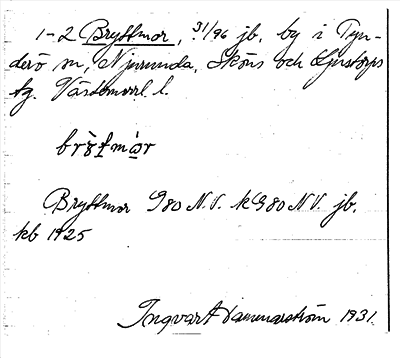 1-2 Bryttmor, 31/96 jb. by i Tyn-
derö sn, Njurunda, Sköns och Ljustorps
tg. Västernorrl. l.
Bryttmor G80 N.V. K G80 N V. jb.
kb 1925
Ingvar Hammarström 1931.